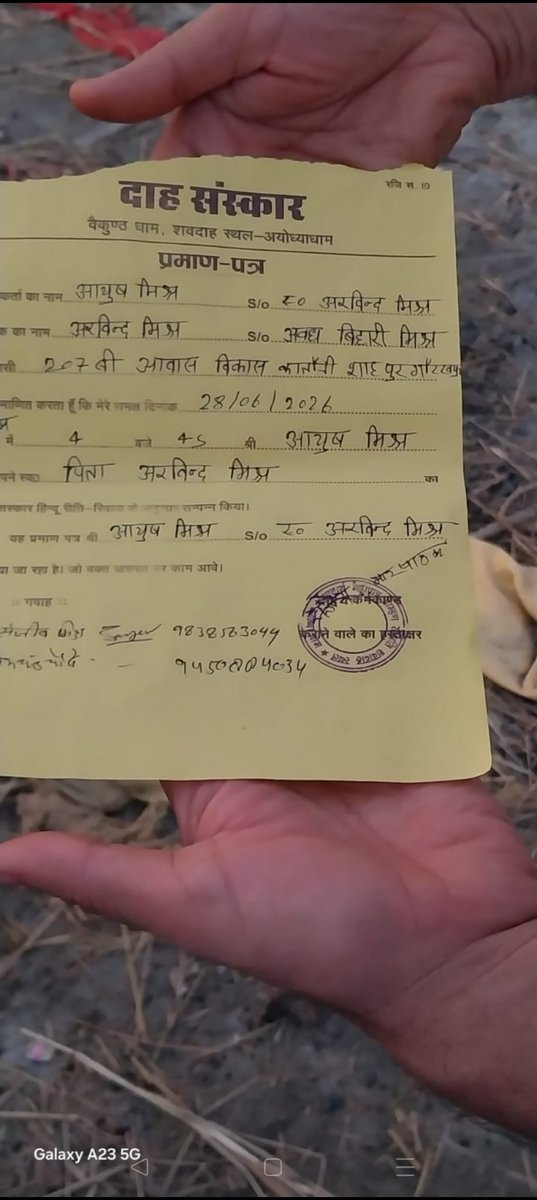 रजि स. 10
दाह संस्कार
वैकुण्ठ धाम, शवदाह स्थल-अयोध्याधाम
प्रमाण-पत्र
कर्ता का नाम आयुष मिश्र S/o स्व० अरविन्द मिश्र
क का नाम अरविन्द मिश्र S/o अवध बिहारी मिश्र
सी 207 बी आवास विकास कालोनी शाहपुर गोरखपु
माणित करता हूँ कि मेरे समक्ष दिनांक 28/06/2026
में 4 बजे 45 श्री आयुष मिश्र
पने स्व० पिता अरविन्द मिश्र का
संस्कार हिन्दू रीति-रिवाज के अनुसार सम्पन्न किया।
यह प्रमाण पत्र श्री आयुष मिश्र S/o स्व० अरविन्द मिश्र
या जा रहा है। जो वक्त जरूरत पर काम आवे।
गवाह
मिश्रा 9838563044 कराने वाले का हस्ताक्षर
Galaxy A23 5G